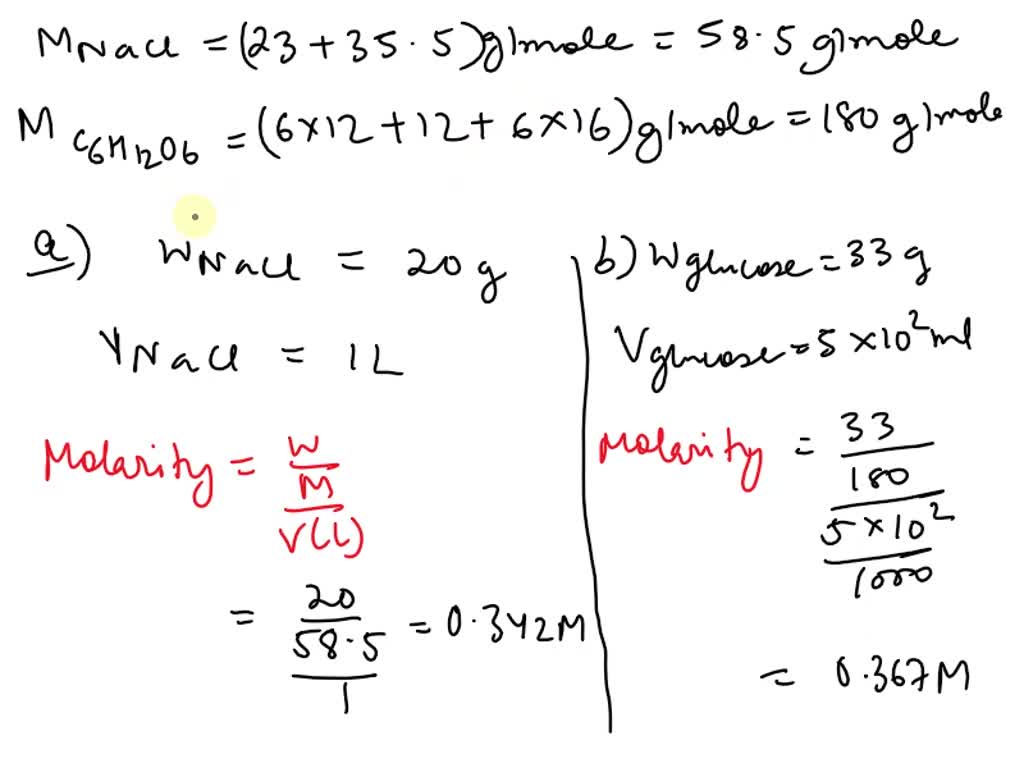 M NaCl = (23 + 35.5) g/mole = 58.5 g/mole
M C6H12O6 = (6×12 + 12 + 6×16) g/mole = 180 g/mole
a) W NaCl = 20 g
V NaCl = 1L
Molarity = W
M
V(L)
= 20
58.5
1
= 0.342M
b) W glucose = 33 g
V glucose = 5 ×10² ml
Molarity = 33
180
5 ×10²
1000
= 0.367 M